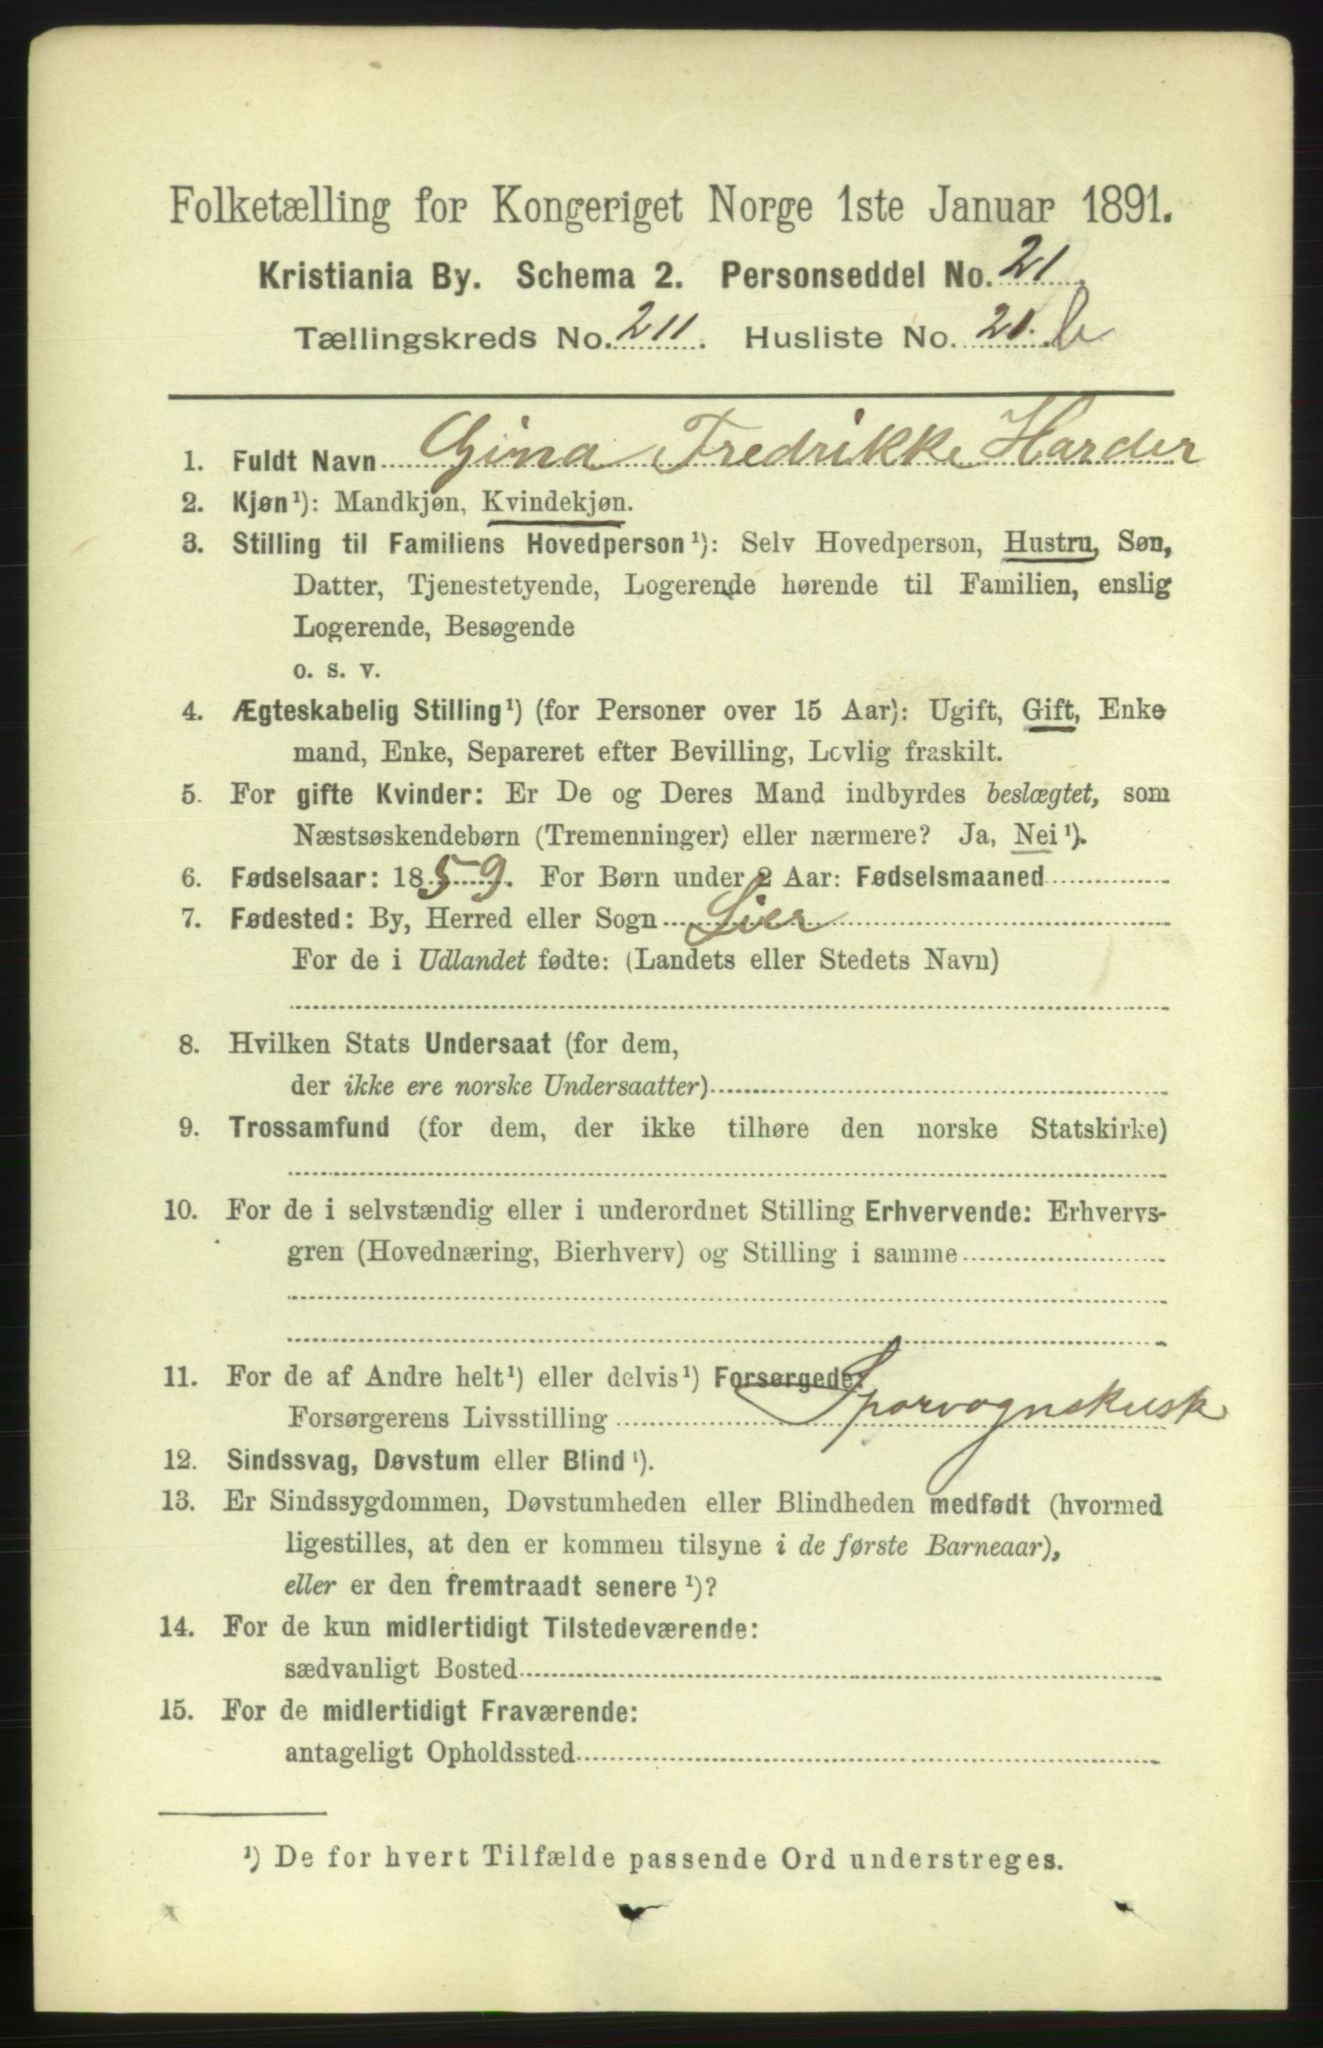 Folketælling for Kongeriget Norge 1ste Januar 1891.
Kristiania By. Schema 2. Personseddel No. 21.
Tællingskreds No. 211. Husliste No. 21. b
1. Fuldt Navn Gina Fredrikke Harder
2. Kjøn¹): Mandkjøn, Kvindekjøn.
3. Stilling til Familiens Hovedperson¹): Selv Hovedperson, Hustru, Søn,
Datter, Tjenestetyende, Logerende hørende til Familien, enslig
Logerende, Besøgende
o. s. v.
4. Ægteskabelig Stilling¹) (for Personer over 15 Aar): Ugift, Gift, Enke
mand, Enke, Separeret efter Bevilling, Lovlig fraskilt.
5. For gifte Kvinder: Er De og Deres Mand indbyrdes beslægtet, som
Næstsøskendebørn (Tremenninger) eller nærmere? Ja, Nei¹).
6. Fødselsaar: 1859. For Børn under 2 Aar: Fødselsmaaned
7. Fødested: By, Herred eller Sogn Lier
For de i Udlandet fødte: (Landets eller Stedets Navn)
8. Hvilken Stats Undersaat (for dem,
der ikke ere norske Undersaatter)
9. Trossamfund (for dem, der ikke tilhøre den norske Statskirke)
10. For de i selvstændig eller i underordnet Stilling Erhvervende: Erhvervs-
gren (Hovednæring, Bierhverv) og Stilling i samme
11. For de af Andre helt¹) eller delvis¹) Forsørgede:
Forsørgerens Livsstilling Sporvognskusk
12. Sindssvag, Døvstum eller Blind¹).
13. Er Sindssygdommen, Døvstumheden eller Blindheden medfødt (hvormed
ligestilles, at den er kommen tilsyne i de første Barneaar),
eller er den fremtraadt senere¹)?
14. For de kun midlertidigt Tilstedeværende:
sædvanligt Bosted
15. For de midlertidigt Fraværende:
antageligt Opholdssted
¹) De for hvert Tilfælde passende Ord understreges.